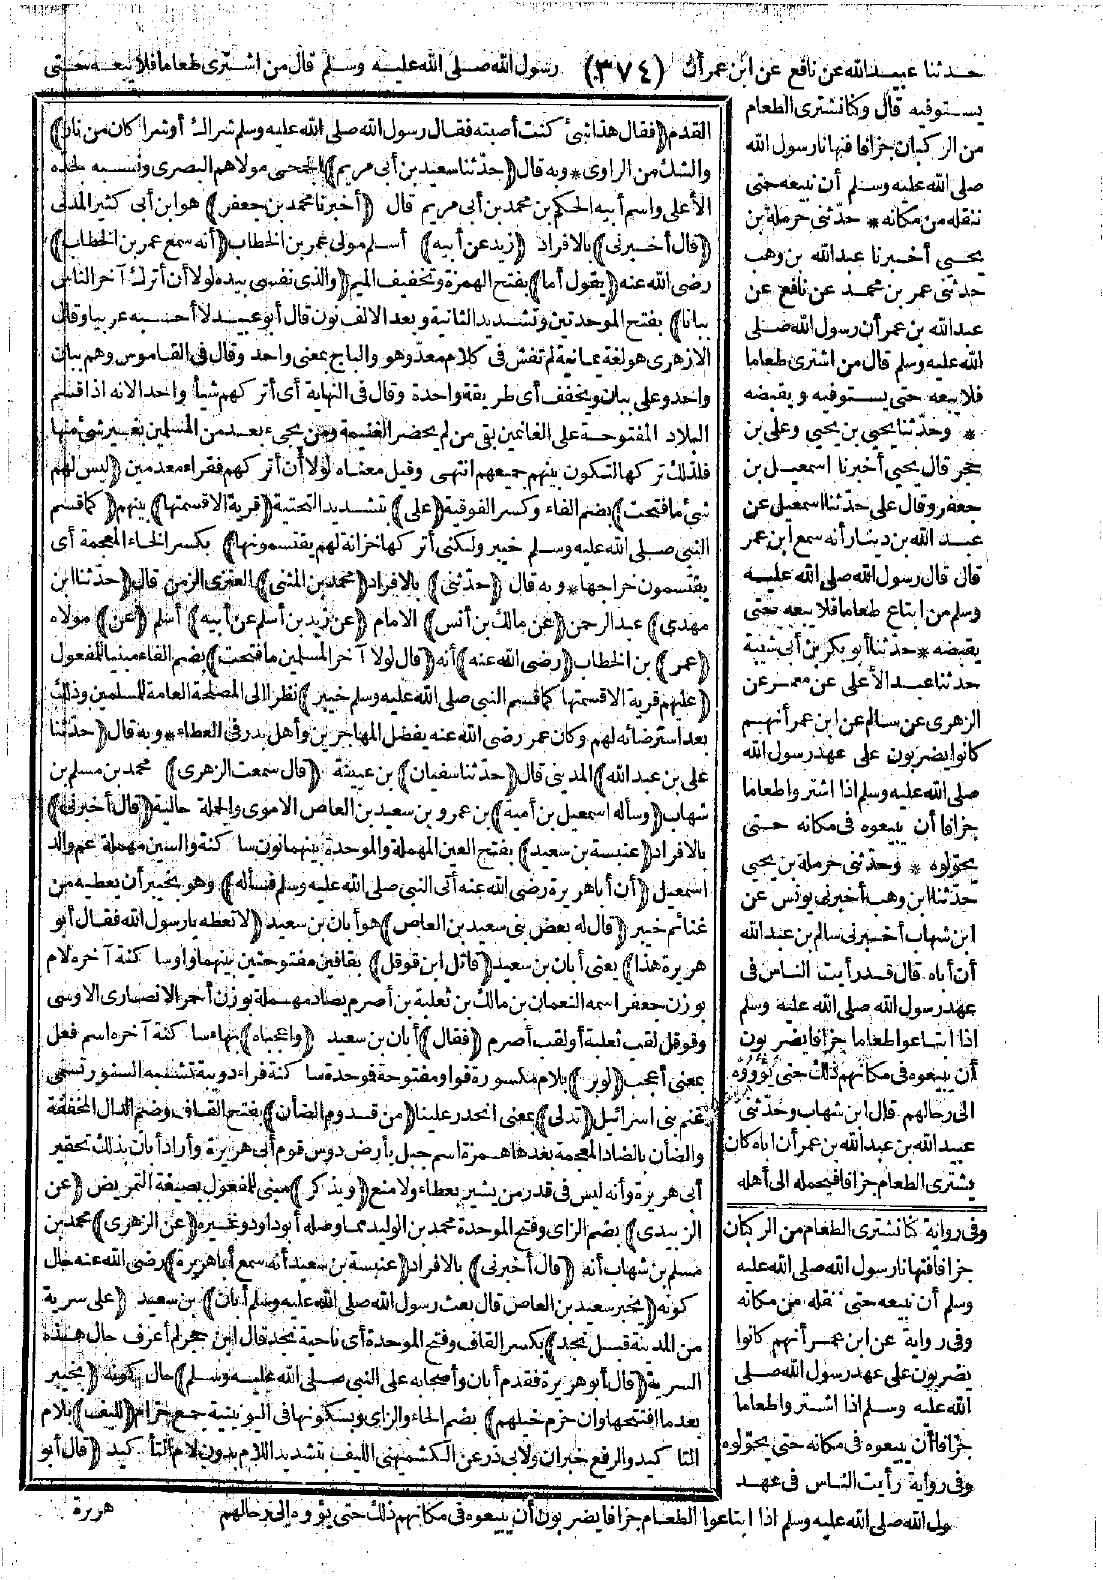 حدثنا عبيد الله عن نافع عن ابن عمر أن (٣٧٤) رسول الله صلى الله عليه وسلم قال من اشترى طعاما فلا يبعه حتى
يستوفيه قال وكنا نشترى الطعام
من الركبان جزافا فنهانا رسول الله
صلى الله عليه وسلم أن نبيعه حتى
ننقله من مكانه * حدثنى حرملة بن
يحيى أخبرنا عبد الله بن وهب
حدثنى عمر بن محمد عن نافع عن
عبد الله بن عمر أن رسول الله صلى
الله عليه وسلم قال من اشترى طعاما
فلا يبعه حتى يستوفيه ويقبضه
* وحدثنا يحيى بن يحيى وعلى بن
حجر قال يحيى أخبرنا اسمعيل بن
جعفر وقال على حدثنا اسمعيل عن
عبد الله بن دينار أنه سمع ابن عمر
قال قال رسول الله صلى الله عليه
وسلم من ابتاع طعاما فلا يبعه حتى
يقبضه * حدثنا أبو بكر بن أبى شيبة
حدثنا عبد الأعلى عن معمر عن
الزهرى عن سالم عن ابن عمر أنهم
كانوا يضربون على عهد رسول الله
صلى الله عليه وسلم اذا اشتروا طعاما
جزافا أن يبيعوه فى مكانه حتى
يحولوه * وحدثنى حرملة بن يحيى
حدثنا ابن وهب أخبرنى يونس عن
ابن شهاب أخبرنى سالم بن عبد الله
أن أباه قال قد رأيت الناس فى
عهد رسول الله صلى الله عليه وسلم
اذا ابتاعوا طعاما جزافا يضربون
أن يبيعوه فى مكانهم ذلك حتى يؤوه
الى رحالهم قال ابن شهاب وحدثنى
عبيد الله بن عبد الله بن عمر أن اباه كان
يشترى الطعام جزافا فيحمله الى أهله
وفى رواية كنا نشترى الطعام من الركبان
جزافا فنهانا رسول الله صلى الله عليه
وسلم أن نبيعه حتى ننقله من مكانه
وفى رواية عن ابن عمر أنهم كانوا
يضربون على عهد رسول الله صلى
الله عليه وسلم اذا اشتروا طعاما
جزافا أن يبيعوه فى مكانه حتى يحولوه
وفى رواية رأيت الناس فى عهد
القدم (فقال هذا شئ كنت أصبته فقال رسول الله صلى الله عليه وسلم شراك أو شراكان من نار)
والشك من الراوى * وبه قال (حدثنا سعيد بن أبى مريم) الجمحى مولاهم البصرى ونسبه لجده
الأعلى واسم أبيه الحكم بن محمد بن أبى مريم قال (أخبرنا محمد بن جعفر) هو ابن أبى كثير المدنى
(قال أخبرنى) بالافراد (زيد عن أبيه) أسلم مولى عمر بن الخطاب (أنه سمع عمر بن الخطاب)
رضى الله عنه (يقول أما) بفتح الهمزة وتخفيف الميم (والذى نفسى بيده لولا أن أترك آخر الناس
ببانا) بفتح الموحدتين وتشديد الثانية وبعد الالف نون قال أبو عبيد لا أحسبه عربيا وقال
الازهرى هو لغة يمانية لم تفش فى كلام معد وهو والباج بمعنى واحد وقال فى القاموس وهم ببان
واحد وعلى ببان ويخفف أى طريقة واحدة وقال فى النهاية أى أتركهم شيأ واحدا لانه اذا قسم
البلاد المفتوحة على الغانمين بقى من لم يحضر الغنيمة ومن يجىء بعد من المسلمين بغير شئ منها
فلذلك تركها لتكون بينهم جميعهم انتهى وقيل معناه لولا أن أتركهم فقراء معدمين (ليس لهم
شئ ما فتحت) بضم الفاء وكسر الفوقية (على) بتشديد التحتية (قرية الا قسمتها) بينهم (كما قسم
النبى صلى الله عليه وسلم خيبر ولكنى أتركها خزانة لهم يقتسمونها) بكسر الخاء المعجمة أى
يقتسمون خراجها * وبه قال (حدثنى) بالافراد (محمد بن المثنى) العنزى الزمن قال (حدثنا ابن
مهدى) عبد الرحمن (عن مالك بن أنس) الامام (عن زيد بن أسلم عن أبيه) أسلم (عن) مولاه
(عمر) بن الخطاب (رضى الله عنه) أنه (قال لولا آخر المسلمين ما فتحت) بضم الفاء مبنيا للمفعول
(عليهم قرية الا قسمتها كما قسم النبى صلى الله عليه وسلم خيبر) نظرا الى المصلحة العامة للمسلمين وذلك
بعد استرضائه لهم وكان عمر رضى الله عنه يفضل المهاجرين وأهل بدر فى العطاء * وبه قال (حدثنا
على بن عبد الله) المدينى قال (حدثنا سفيان) بن عيينة (قال سمعت الزهرى) محمد بن مسلم بن
شهاب (وسأله اسمعيل بن أمية) بن عمرو بن سعيد بن العاص الاموى والجملة حالية (قال أخبرنى)
بالافراد (عنبسة بن سعيد) بفتح العين المهملة والموحدة بينهما نون ساكنة والسين مهملة عم والد
اسمعيل (أن أبا هريرة رضى الله عنه أتى النبى صلى الله عليه وسلم فسأله) وهو بخيبر أن يعطيه من
غنائم خيبر (قال له بعض بنى سعيد بن العاص) هو أبان بن سعيد (لا تعطه يا رسول الله فقال أبو
هريرة هذا) يعنى أبان بن سعيد (قاتل ابن قوقل) بقافين مفتوحتين بينهما واو ساكنة آخره لام
بوزن جعفر اسمه النعمان بن مالك بن ثعلبة بن أصرم بصاد مهملة بوزن أحمر الانصارى الاوسى
وقوقل لقب ثعلبة أو لقب أصرم (فقال) أبان بن سعيد (واعجباه) بهاء ساكنة آخره اسم فعل
بمعنى أعجب (لوبر) بلام مكسورة فواو مفتوحة فوحدة ساكنة فراء دويبة تشبه السنور تسمى
غنم بنى اسرائيل (تدلى) بمعنى انحدر علينا (من قدوم الضأن) بفتح القاف وضم الدال المخففة
والضأن بالضاد المعجمة بعدها همزة اسم جبل بأرض دوس قوم أبى هريرة وأراد أبان بذلك تحقير
أبى هريرة وأنه ليس فى قدر من يشير بعطاء ولا منع (ويذكر) مبنى للمفعول بصيغة التمريض (عن
الزبيدى) بضم الزاى وفتح الموحدة محمد بن الوليد مما وصله أبو داود وغيره (عن الزهرى) محمد بن
مسلم بن شهاب أنه (قال أخبرنى) بالافراد (عنبسة بن سعيد أنه سمع أبا هريرة) رضى الله عنه حال
كونه (يخبر سعيد بن العاص قال بعث رسول الله صلى الله عليه وسلم أبان) بن سعيد (على سرية
من المدينة قبل نجد) بكسر القاف وفتح الموحدة أى ناحية نجد قال ابن حجر لم أعرف حال هذه
السرية (قال أبو هريرة فقدم أبان وأصحابه على النبى صلى الله عليه وسلم) حال كونه (بخيبر
بعد ما افتتحها وان حزم خيلهم) بضم الحاء والزاى وبسكونها فى اليونينية جمع حزام (لليف) بلام
التاكيد والرفع خبران ولابى ذر عن الكشميهنى الليف بتشديد اللام بدون لام التاكيد (قال أبو
ول الله صلى الله عليه وسلم اذا ابتاعوا الطعام جزافا يضربون أن يبيعوه فى مكانهم ذلك حتى يؤوه إلى رحالهم
هريرة